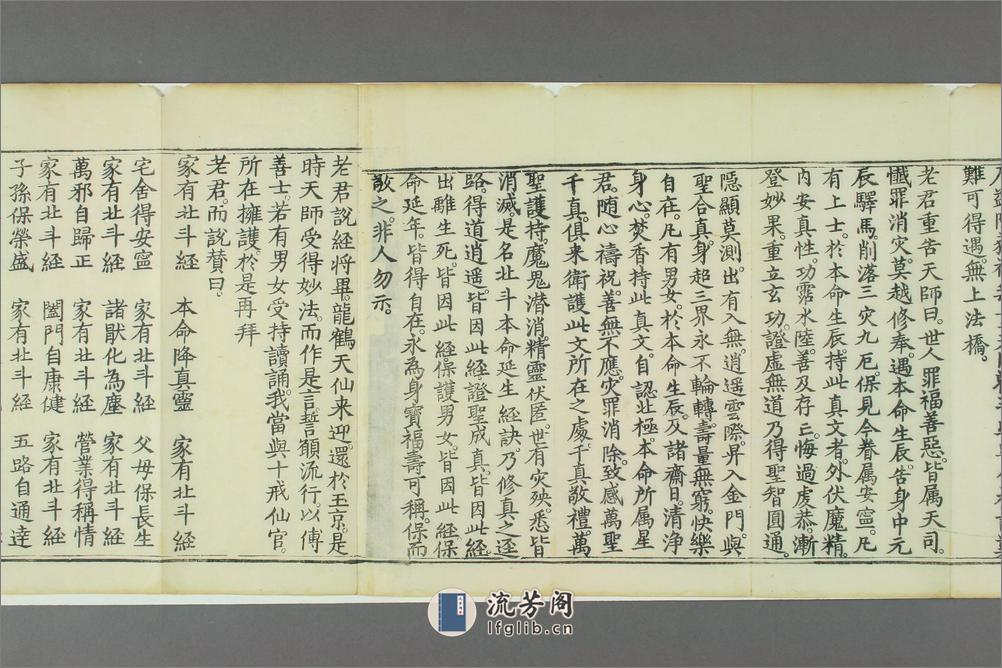 難可得遇。無上法橋。
老君重告天師曰。世人罪福善惡。皆属天司。
懺罪消灾。莫越修奉。遇本命生辰。告身中元
辰驛馬。削落三灾九厄。保見今眷属安寍。凡
有上士。於本命生辰。持此真文者。外伏魔精。
内安真性。功霑水陸。善及存亡。悔過虔恭。漸
登妙果。重立玄功。證虛無道。乃得聖智圓通。
隠顯莫測。出有入無。逍遥雲際。昇入金門。與
聖合真身。超三界。永不輪轉。壽量無窮。快樂
自在。凡有男女。於本命生辰。及諸齋日。清淨
身心。焚香持此真文。自認北極本命所属星
君。随心禱祝。善無不應。灾罪消除。致感萬聖
千真。俱来衛護。此文所在之處。千真敬禮。萬
聖護持。魔鬼潜消。精靈伏匿。世有灾殃。悉皆
消滅。是名北斗本命延生經訣。乃修真之逕
路。得道逍遥。皆因此經。證聖成真。皆因此經。
出離生死。皆因此經。保護男女。皆因此經。保
命延年。皆得自在。永為身寳。福壽可稱。保而
敬之。非人勿示。
老君說經将畢。龍鶴天仙来迎。還於玉京。是
時天師受得妙法。而作是言。誓願流行。以傳
善士。若有男女受持讀誦。我當與十戒仙官。
所在擁護。於是再拜
老君。而說贊曰。
家有北斗經 本命降真靈 家有北斗經
宅舍得安寍 家有北斗經 父母保長生
家有北斗經 諸猒化為塵 家有北斗經
萬邪自歸正 家有北斗經 營業得稱情
家有北斗經 闔門自康健 家有北斗經
子孫保榮盛 家有北斗經 五路自通達
流芳阁
lfglib.cn